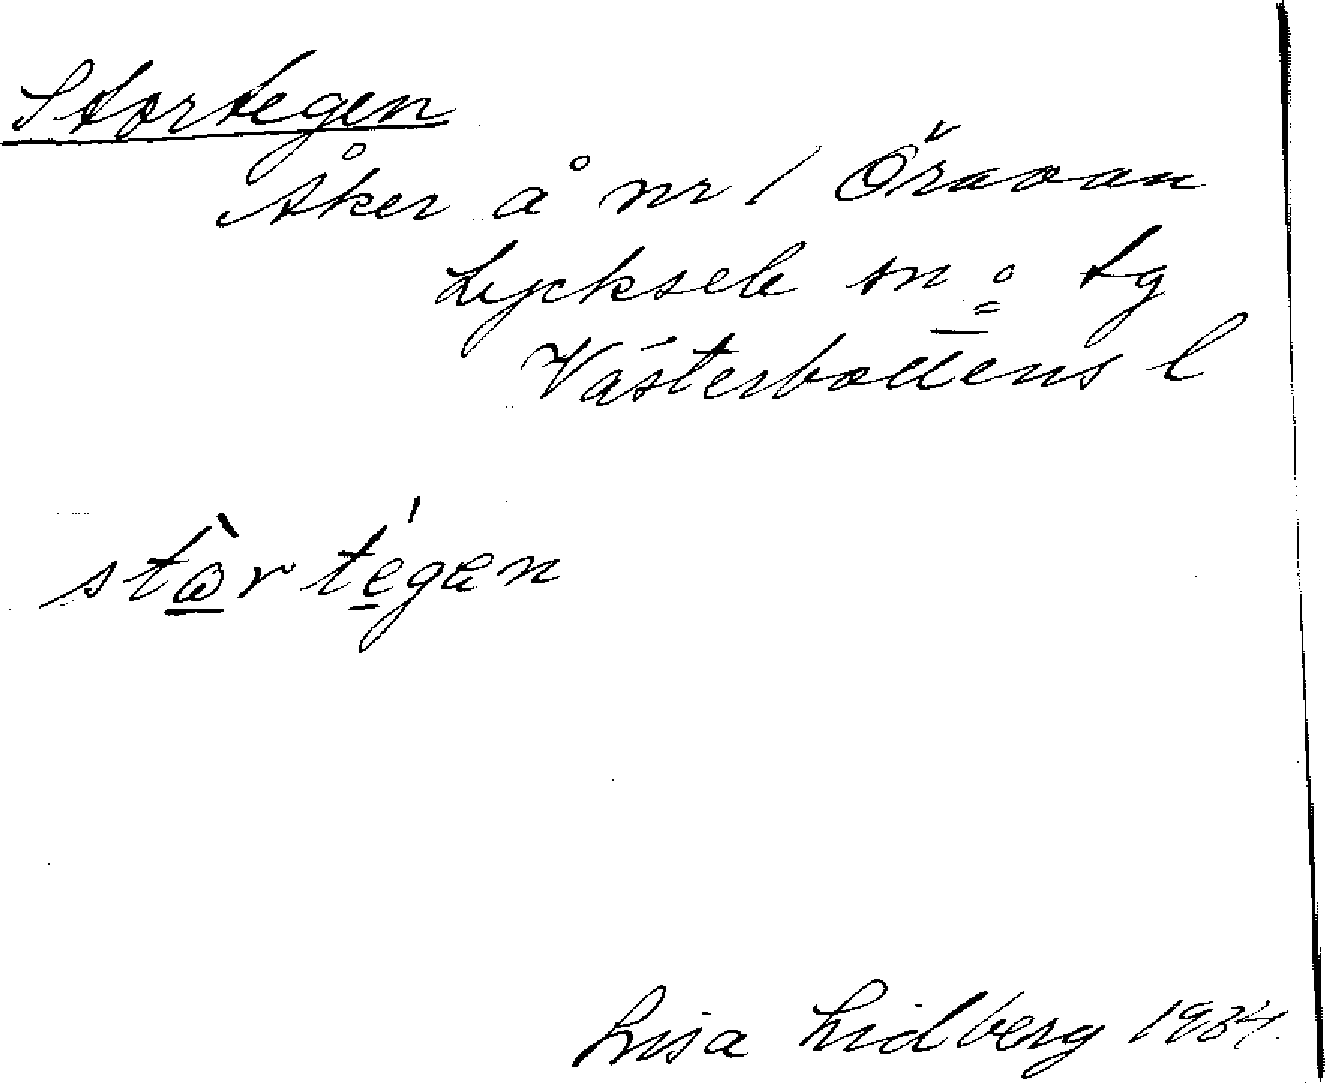 Stortegen
Åker å nr 1 Öravan
Lycksele sn o tg
Västerbottens l
stòrtégan
Lisa Lidberg 1934.